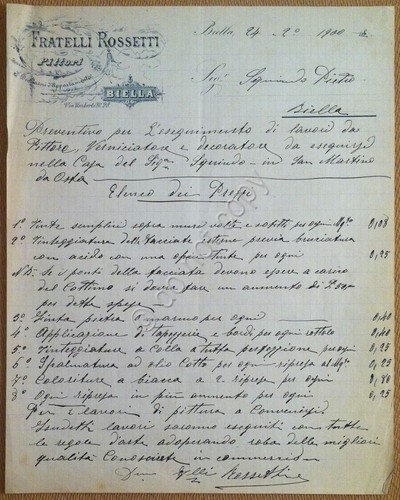 FRATELLI ROSSETTI
Pittori
BIELLA
Biella 24 - 2º 1900
Sigr. Squindo Pietro
Biella
Preventivo per l'eseguimento di lavori da
Pittore, Verniciatore e decoratore da eseguirsi
nella Casa del Sigr. Squindo - in San Martino
Elenco dei Prezzi
1º Tinte semplici sopra muri volte e soffitti per ogni Mq. 0,08
2º Tinteggiatura delle facciate esterne previa bruciatura
con acido con una tinte per ogni 0,25
NB. Se i ponti della facciata devono essere a carico
del Cottimo si dovrà fare un aumento di
per dette spese
3º Tinta pietra marmo per ogni 0,40
4º Applicazione di tapezzerie e bordi per ogni rottolo 0,40
5º Tinteggiature a colla a tutta perfezione per ogni 0,25
6º Spalmatura ad olio cotto per ogni ripresa al Mq. 0,25
7º Coloriture a biacca a 2 riprese per ogni 0,80
8º Ogni ripresa in più aumento per ogni 0,25
Per i lavori di pittura a Convenirsi.
Sudetti lavori saranno eseguiti con tutte
le regole d'arte adoperando roba delle migliori
qualità Conosciute in commercio
F.lli Rossetti